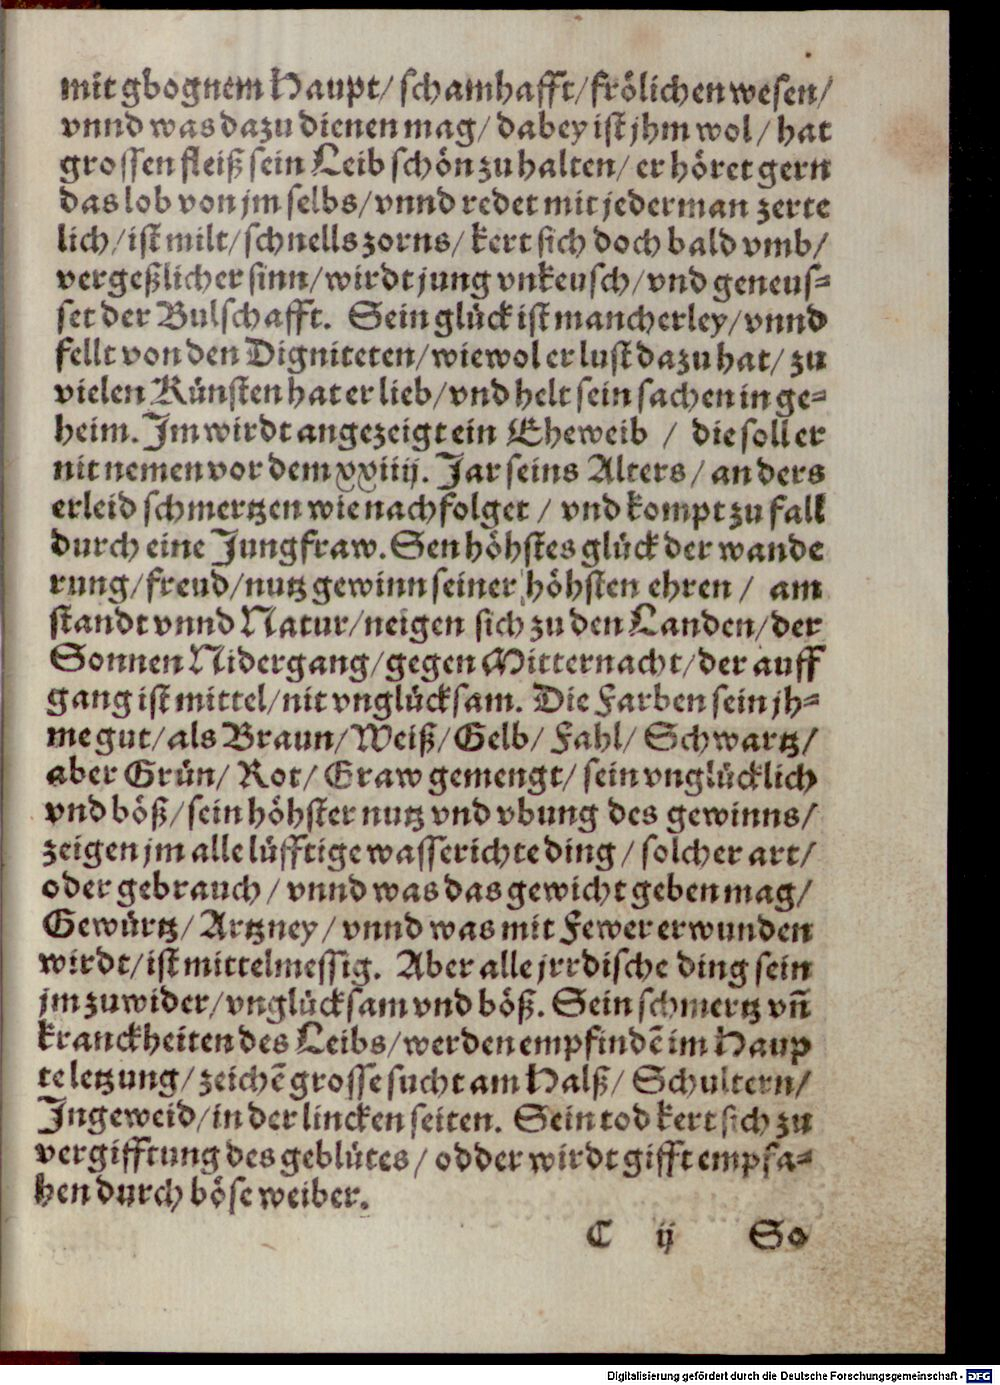 mit gbognem Haupt/ schamhafft/ frölichen wesen/
vnnd was dazu dienen mag/ dabey ist jhm wol/ hat
grossen fleiß sein Leib schön zu halten/ er höret gern
das lob von jm selbs/ vnnd redet mit jederman zerte
lich/ ist milt/ schnells zorns/ kert sich doch bald vmb/
vergeßlicher sinn/ wirdt jung vnkeusch/ vnd geneus-
set der Bulschafft. Sein glück ist mancherley/ vnnd
fellt von den Digniteten/ wiewol er lust dazu hat/ zu
vielen Künsten hat er lieb/ vnd helt sein sachen in ge-
heim. Im wirdt angezeigt ein Eheweib / die soll er
nit nemen vor dem xxiiij. Jar seins Alters/ anders
erleid schmertzen wie nachfolget / vnd kompt zu fall
durch eine Jungfraw. Sen höhstes glück der wande
rung/ freud/ nutz gewinn seiner höhsten ehren / am
standt vnnd Natur/ neigen sich zu den Landen/ der
Sonnen Nidergang/ gegen Mitternacht/ der auff
gang ist mittel/ nit vnglücksam. Die Farben sein jh-
me gut/ als Braun/ Weiß/ Gelb/ Fahl/ Schwartz/
aber Grün/ Rot/ Graw gemengt/ sein vnglücklich
vnd böß/ sein höhster nutz vnd vbung des gewinns/
zeigen jm alle lüfftige wasserichte ding / solcher art/
oder gebrauch / vnnd was das gewicht geben mag/
Gewürtz/ Artzney / vnnd was mit Fewer erwunden
wirdt/ ist mittelmessig. Aber alle jrrdische ding sein
jm zuwider/ vnglücksam vnd böß. Sein schmertz vñ
kranckheiten des Leibs/ werden empfindẽ im Haup
te letzung/ zeichẽ grosse sucht am Halß/ Schultern/
Ingeweid/ in der lincken seiten. Sein tod kert sich zu
vergifftung des geblütes/ odder wirdt gifft empfa-
hen durch böse weiber.
C ij So
Digitalisierung gefördert durch die Deutsche Forschungsgemeinschaft - DFG